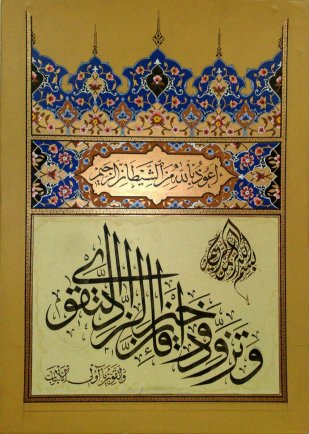 أعوذ بالله من الشيطان الرجيم
بسم الله الرحمن الرحيم
وتزودوا فإن خير الزاد التقوى
واتقون يا أولي الألباب